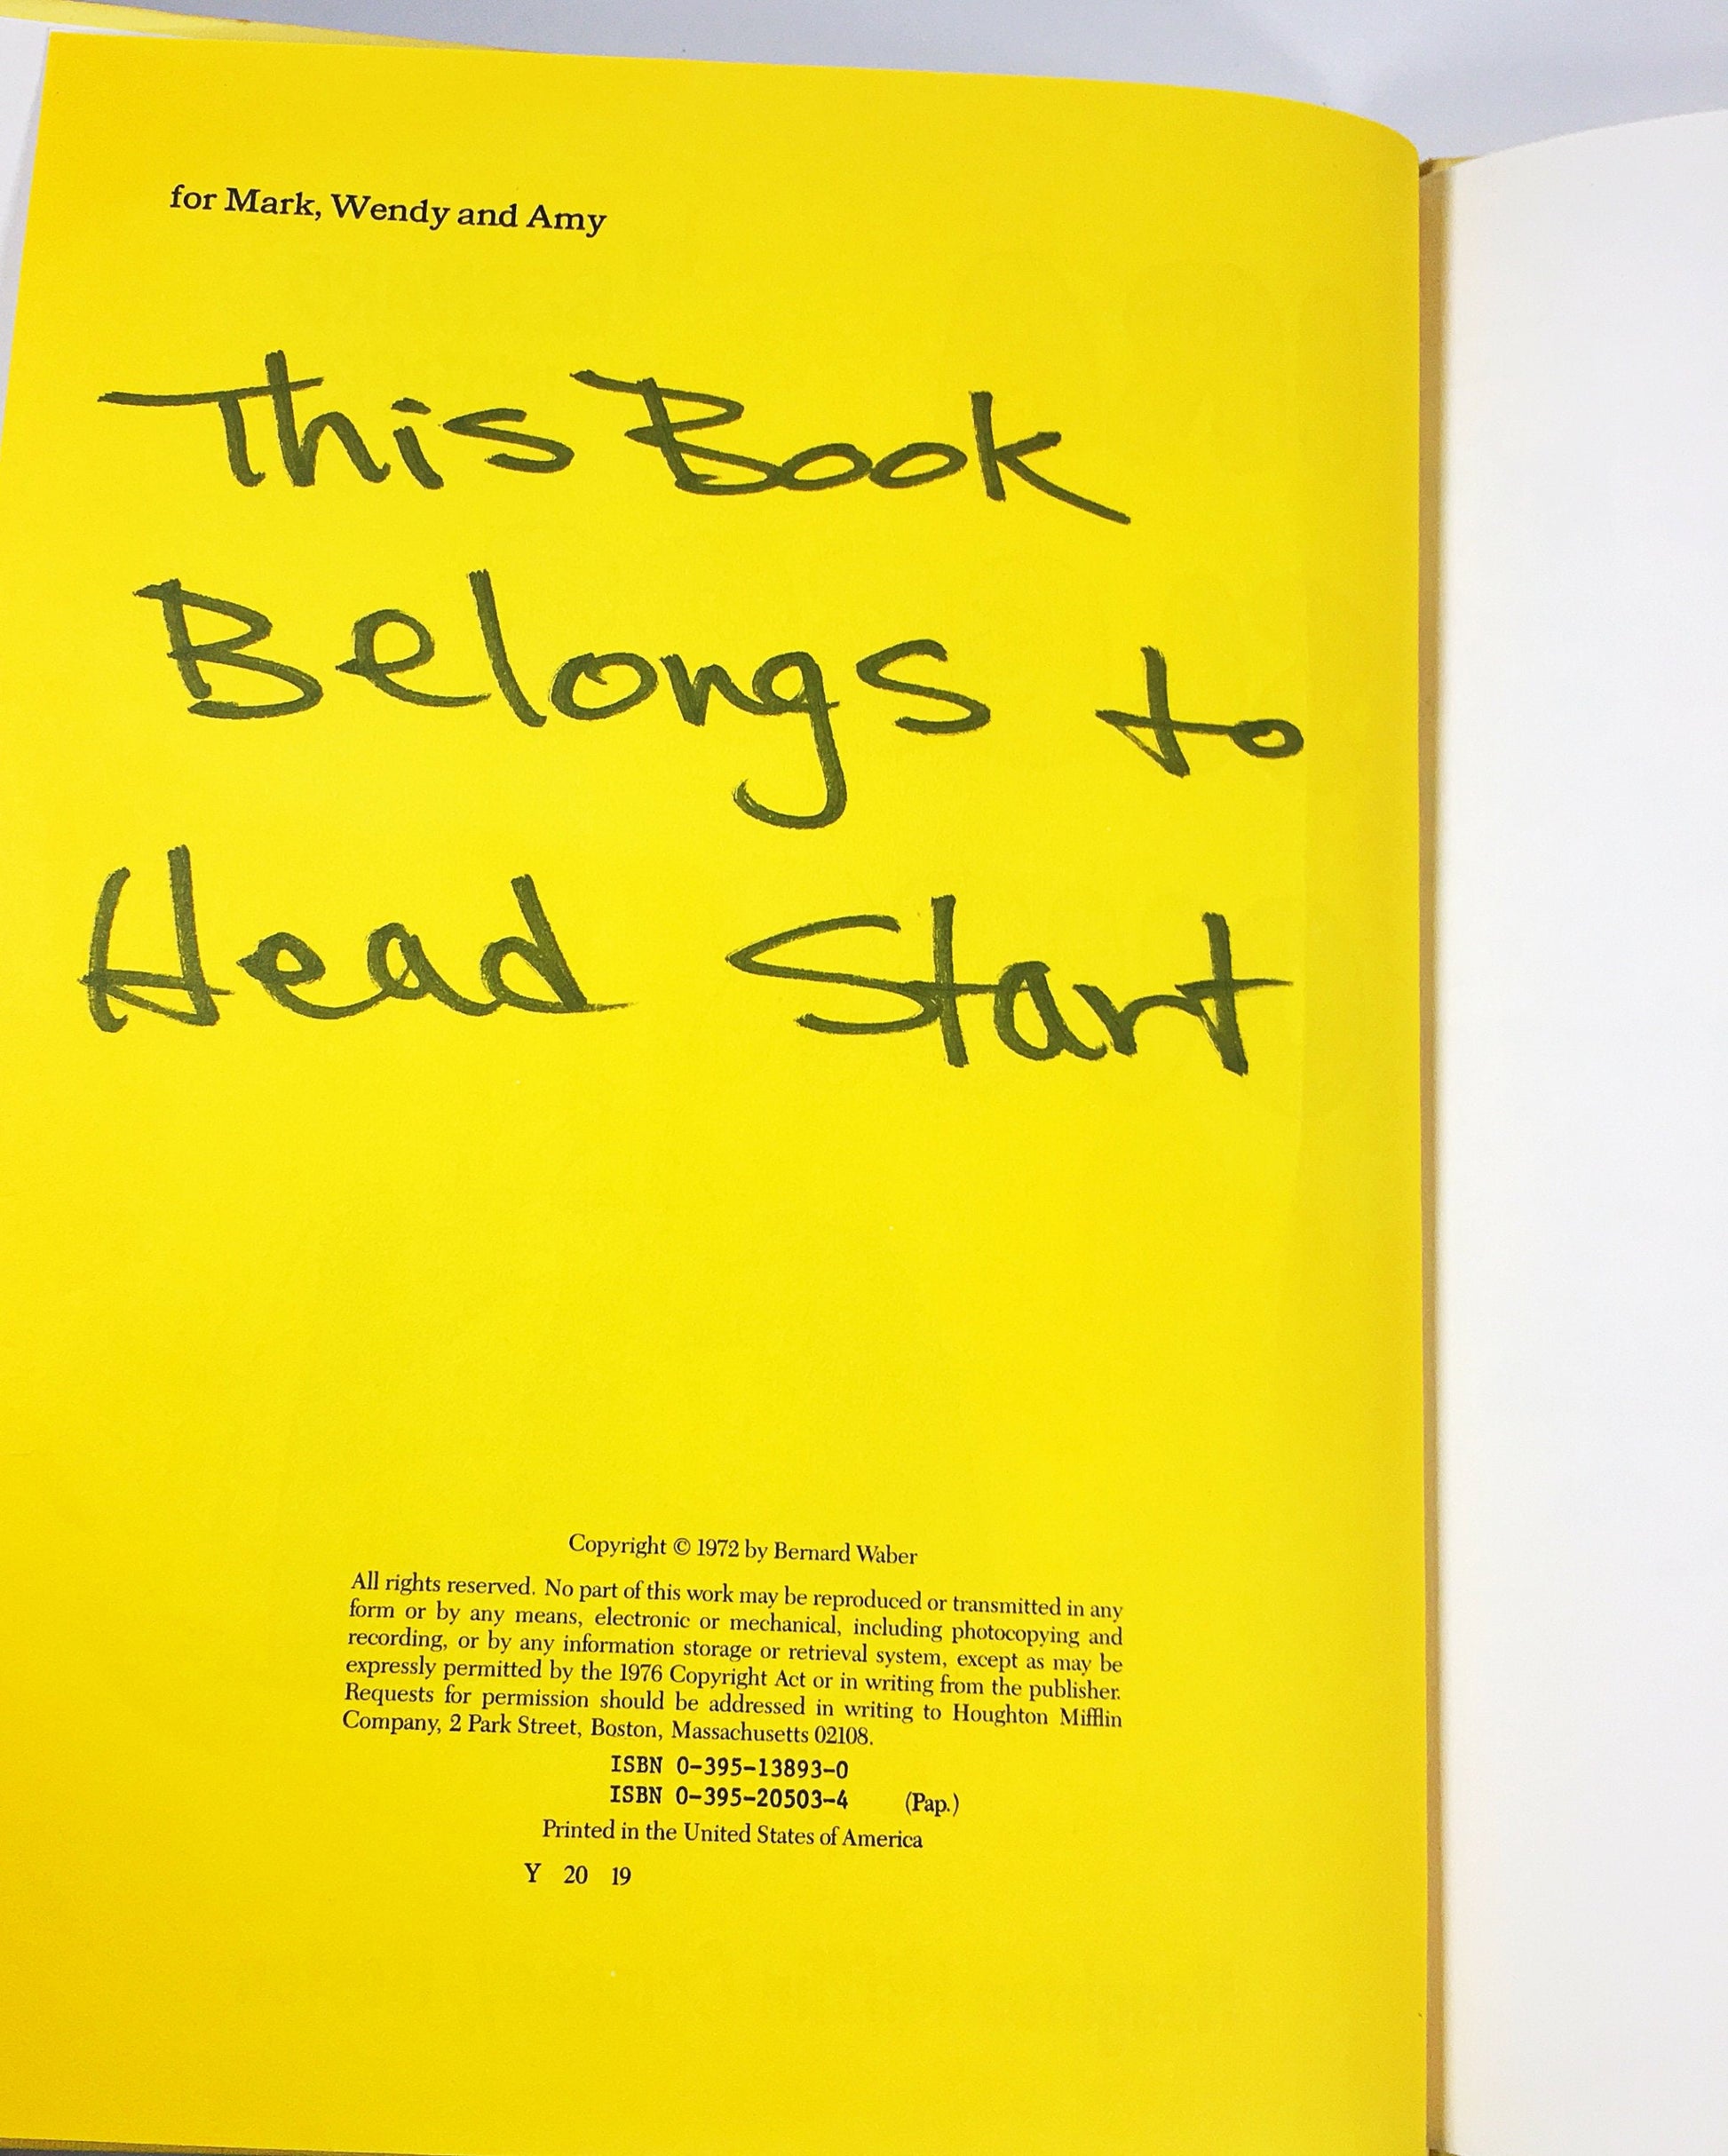 for Mark, Wendy and Amy
This Book
Belongs to
Head Start
Copyright © 1972 by Bernard Waber
All rights reserved. No part of this work may be reproduced or transmitted in any
form or by any means, electronic or mechanical, including photocopying and
recording, or by any information storage or retrieval system, except as may be
expressly permitted by the 1976 Copyright Act or in writing from the publisher.
Requests for permission should be addressed in writing to Houghton Mifflin
Company, 2 Park Street, Boston, Massachusetts 02108.
ISBN 0-395-13893-0
ISBN 0-395-20503-4 (Pap.)
Printed in the United States of America
Y 20 19